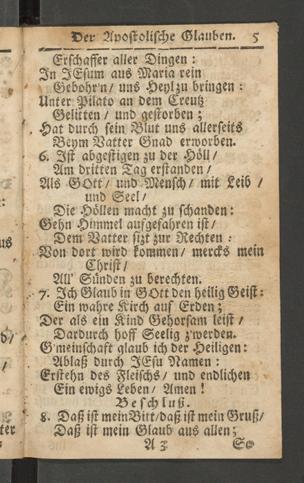 Der Apostolische Glauben. 5
Erschaffer aller Dingen:
In JEsum aus Maria rein
Gebohr'n / uns Heyl zu bringen:
Unter Pilato an dem Creutz
Gelitten / und gestorben;
Hat durch sein Blut uns allerseits
Beym Vatter Gnad erworben.
6. Ist abgestigen zu der Höll /
Am dritten Tag erstanden /
Als GOtt / und Mensch / mit Leib /
und Seel /
Die Höllen macht zu schanden:
Gehn Himmel aufgefahren ist /
Dem Vatter sizt zur Rechten:
Von dort wird kommen / mercks mein
Christ /
All' Sünden zu berechten.
7. Ich Glaub in GOtt den heilig Geist:
Ein wahre Kirch auf Erden;
Der als ein Kind Gehorsam leist /
Dardurch hoff Seelig z'werden.
G'meinschaft glaub ich der Heiligen:
Ablaß durch JEsu Namen:
Erstehn des Fleischs / und endlichen
Ein ewigs Leben / Amen!
Beschluß.
8. Daß ist mein Bitt / daß ist mein Gruß /
Daß ist mein Glaub aus allen;
A 3 So
us
ter